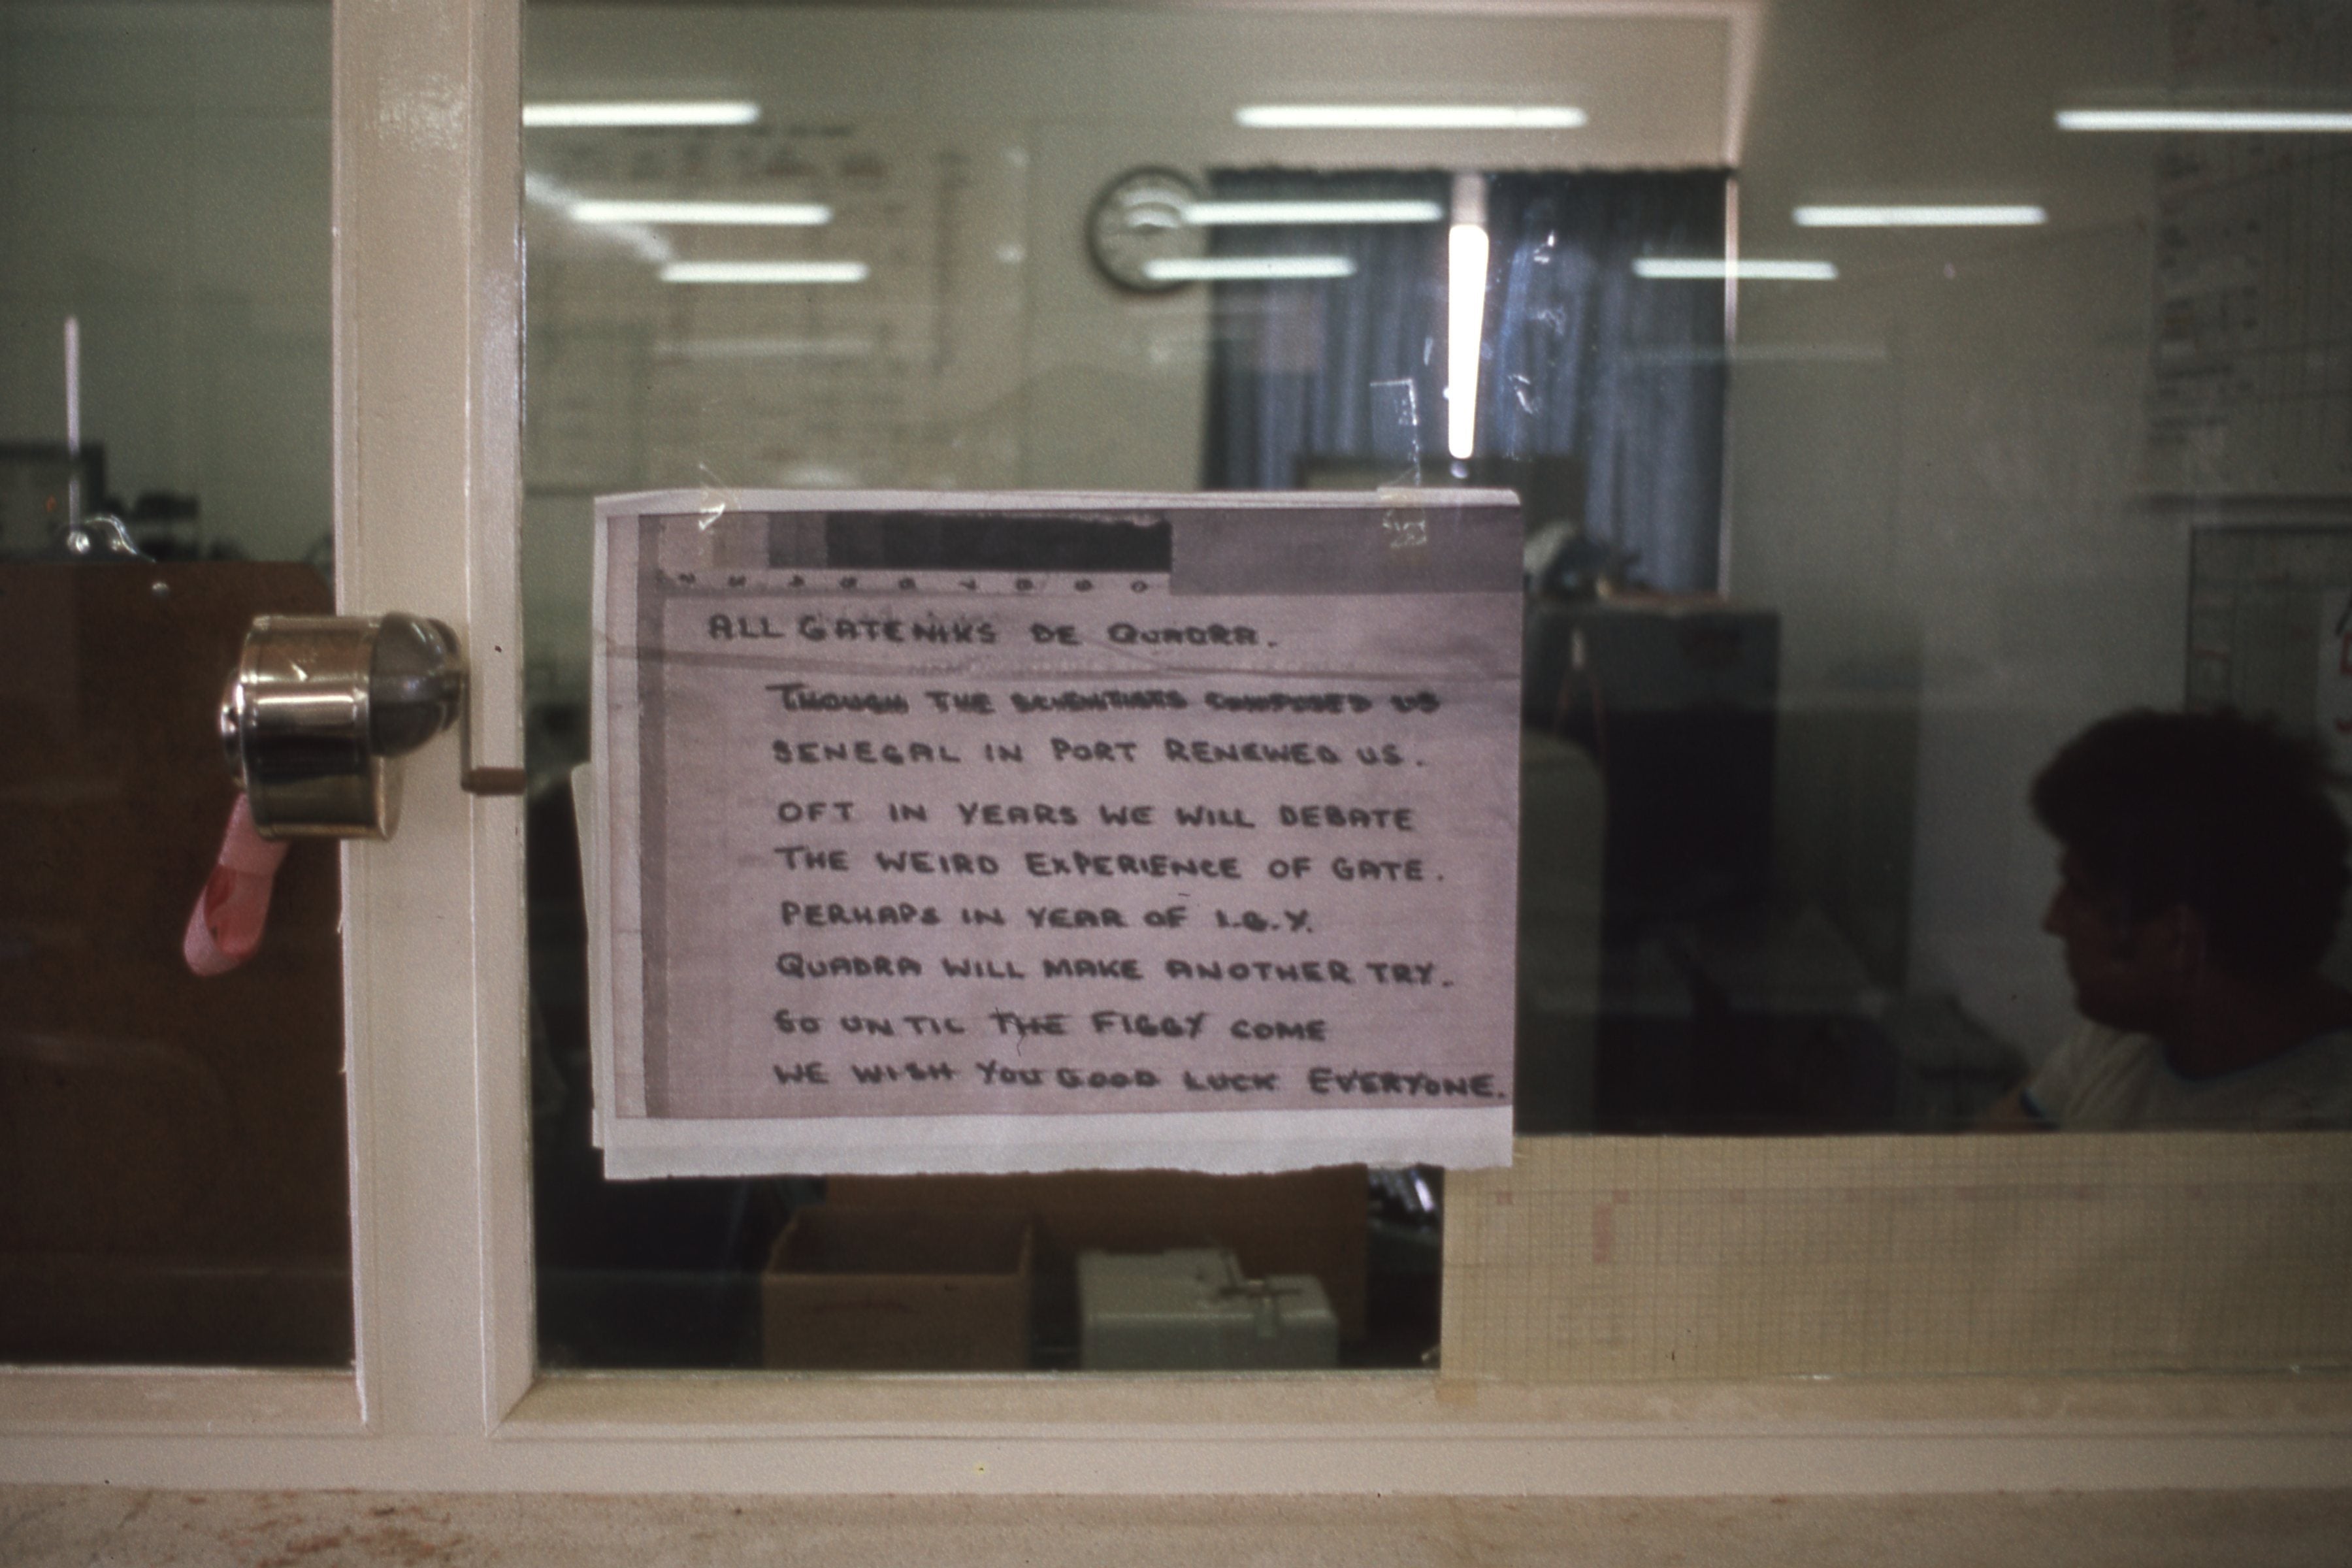 ALL GATENIKS DE QUADRA.
THOUGH THE SCIENTISTS CONFUSED US
SENEGAL IN PORT RENEWED US.
OFT IN YEARS WE WILL DEBATE
THE WEIRD EXPERIENCE OF GATE.
PERHAPS IN YEAR OF I.G.Y.
QUADRA WILL MAKE ANOTHER TRY.
SO UNTIL THE FIGGY COME
WE WISH YOU GOOD LUCK EVERYONE.